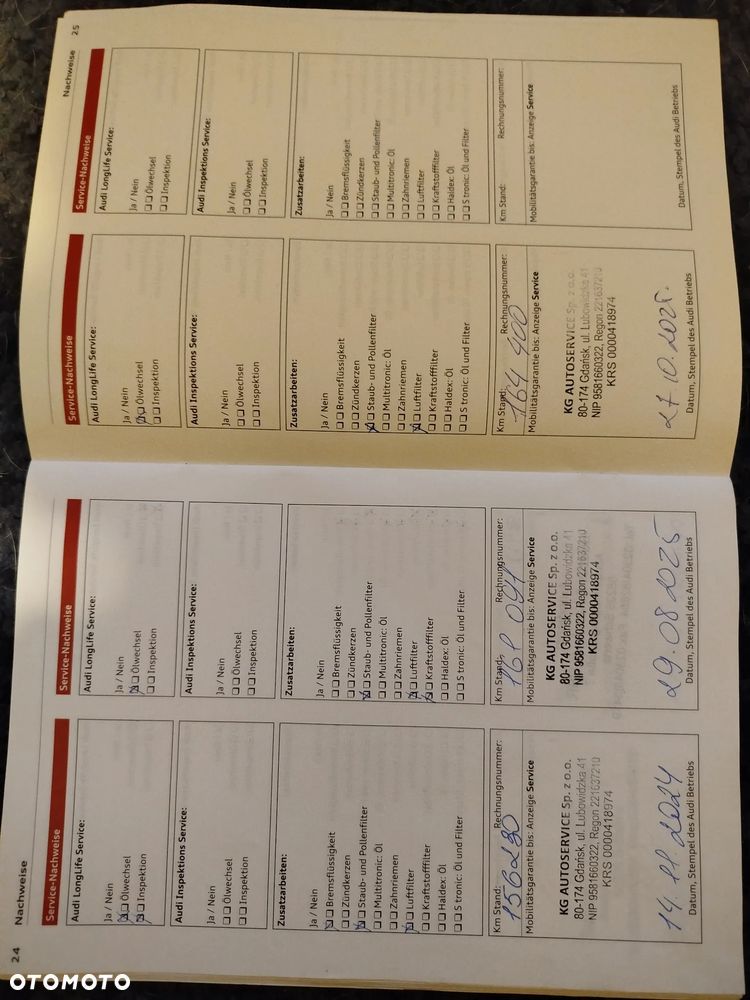 24 Nachweise
Service-Nachweise
Audi LongLife Service:
Ja / Nein
Ölwechsel
Inspektion
Audi Inspektions Service:
Ja / Nein
Ölwechsel
Inspektion
Zusatzarbeiten:
Ja / Nein
Bremsflüssigkeit
Zündkerzen
Staub- und Pollenfilter
Multitronic: Öl
Zahnriemen
Luftfilter
Kraftstofffilter
Haldex: Öl
S tronic: Öl und Filter
Km Stand: Rechnungsnummer:
156230
Mobilitätsgarantie bis: Anzeige Service
KG AUTOSERVICE Sp. z o.o.
80-174 Gdańsk, ul. Lubowidzka 41
NIP 9581660322, Regon 221637210
KRS 0000418974
14.11.2024
Datum, Stempel des Audi Betriebs
Service-Nachweise
Audi LongLife Service:
Ja / Nein
Ölwechsel
Inspektion
Audi Inspektions Service:
Ja / Nein
Ölwechsel
Inspektion
Zusatzarbeiten:
Ja / Nein
Bremsflüssigkeit
Zündkerzen
Staub- und Pollenfilter
Multitronic: Öl
Zahnriemen
Luftfilter
Kraftstofffilter
Haldex: Öl
S tronic: Öl und Filter
Km Stand: Rechnungsnummer:
Mobilitätsgarantie bis: Anzeige Service
KG AUTOSERVICE Sp. z o.o.
80-174 Gdańsk, ul. Lubowidzka 41
NIP 9581660322, Regon 221637210
KRS 0000418974
29.08.2025
Datum, Stempel des Audi Betriebs
Nachweise 25
Service-Nachweise
Audi LongLife Service:
Ja / Nein
Ölwechsel
Inspektion
Audi Inspektions Service:
Ja / Nein
Ölwechsel
Inspektion
Zusatzarbeiten:
Ja / Nein
Bremsflüssigkeit
Zündkerzen
Staub- und Pollenfilter
Multitronic: Öl
Zahnriemen
Luftfilter
Kraftstofffilter
Haldex: Öl
S tronic: Öl und Filter
Km Stand: Rechnungsnummer:
164 400
Mobilitätsgarantie bis: Anzeige Service
KG AUTOSERVICE Sp. z o.o.
80-174 Gdańsk, ul. Lubowidzka 41
NIP 9581660322, Regon 221637210
KRS 0000418974
27.10.2025r.
Datum, Stempel des Audi Betriebs
Service-Nachweise
Audi LongLife Service:
Ja / Nein
Ölwechsel
Inspektion
Audi Inspektions Service:
Ja / Nein
Ölwechsel
Inspektion
Zusatzarbeiten:
Ja / Nein
Bremsflüssigkeit
Zündkerzen
Staub- und Pollenfilter
Multitronic: Öl
Zahnriemen
Luftfilter
Kraftstofffilter
Haldex: Öl
S tronic: Öl und Filter
Km Stand: Rechnungsnummer:
Mobilitätsgarantie bis: Anzeige Service
Datum, Stempel des Audi Betriebs
OTOMOTO